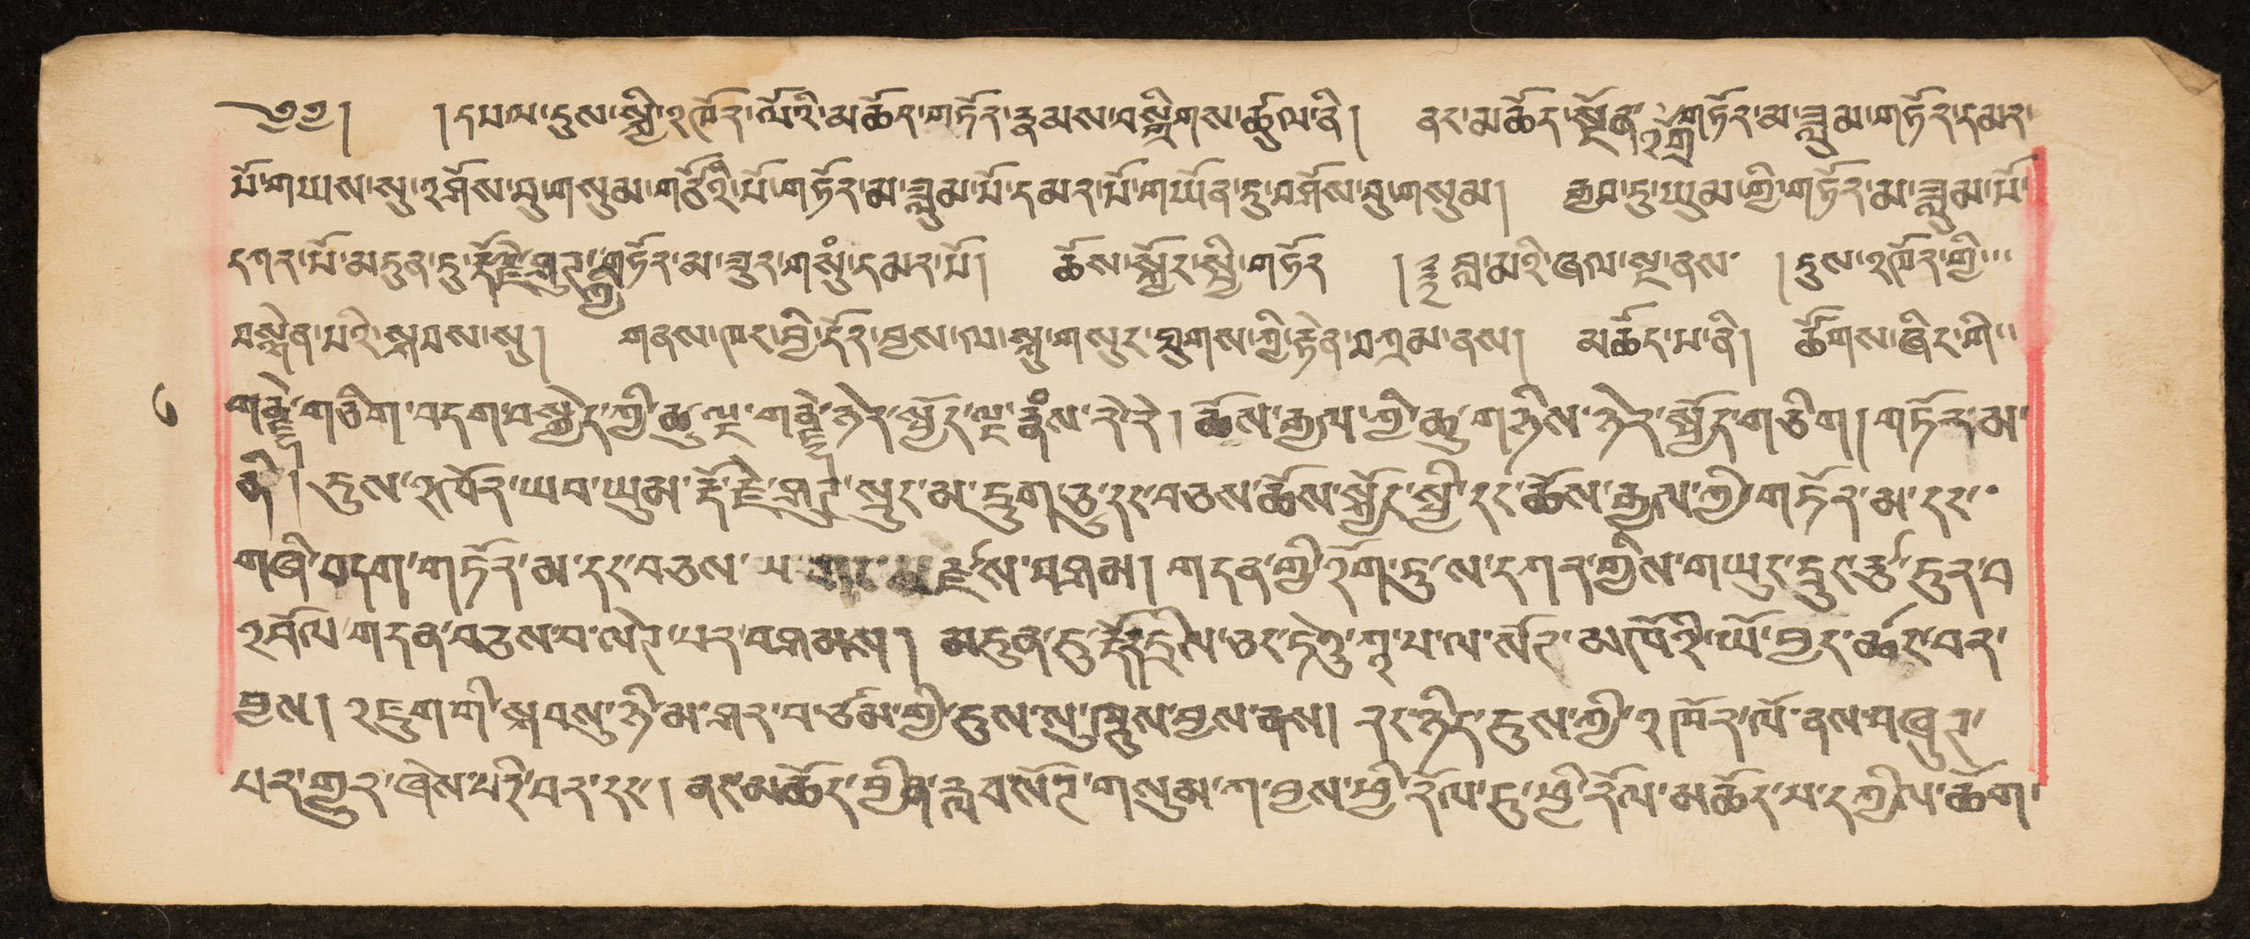 ༄༅། །དཔལ་དུས་ཀྱི་འཁོར་ལོའི་མཆོད་གཏོར་རྣམས་བསྒྲིགས་ཚུལ་ནི། ནང་མཆོད་སྔོན་འགྲོ་གཏོར་མ་ཟླུམ་གཏོར་དམར་
པོ་གཡས་སུ་འགོས་བུ་གསུམ་གཙོ་བོའི་གཏོར་མ་ཟླུམ་པོ་དམར་པོ་གཡོན་དུ་བགོས་བུ་གསུམ། རྒྱབ་ཏུ་ཡུམ་གྱི་གཏོར་མ་ཟླུམ་པོ་
དཀར་པོ་མདུན་དུ་རྡོ་རྗེ་ཤུགས་ཀྱི་གཏོར་མ་ཟུར་གསུམ་དམར་པོ། ཆོས་སྐྱོང་སྤྱི་གཏོར །བླ་མའི་ཞལ་སྔ་ནས །དུས་འཁོར་གྱི་
བསྙེན་པའི་སྐབས་སུ། གནས་ཁང་བྱི་དོར་བྱས་ལ་སྐུ་གསུང་ཐུགས་ཀྱི་རྟེན་བཀྲམ་ནས། མཆོད་པ་ནི། ཚོགས་ཞིང་གི་
གཅིག་བདག་བསྐྱེད་ཀྱི་ཆུ་ལྔ་ ཉེར་སྤྱོད་ལྔ་ རེ་རེ། ཆོས་རྒྱལ་གྱི་ཆུ་གཉིས་ཉེར་སྤྱོད་གཅིག །གཏོར་མ་
ནི། དུས་འཁོར་ཡབ་ཡུམ་རྡོ་རྗེ་ཤུགས་སྲུང་མ་དྲུག་ཅུ་དང་བཅས་ཆོས་སྐྱོང་སྤྱི་དང་ཆོས་རྒྱལ་གྱི་གཏོར་མ་དང་
གཞི་བདག་གཏོར་མ་དང་བཅས་པ་ བཤམ། གདན་གྱི་འོག་ཏུ་ས་དཀར་གྱིས་གཡུང་དྲུང་རྩྭ་དུར་བ་
འབོལ་གདན་བཅས་པ་ལེགས་པར་བཤམས། མདུན་དུ་རྡོར་དྲིལ་ཅང་ཏེའུ་ཀ་པ་ལ་སོགས་མཁོའི་ཡོ་བྱད་ཚང་བར་
བྱས། འཇུག་གི་སྐབས་སུ་ཉི་མ་ཤར་བ་ཙམ་གྱི་དུས་སུ་ཁྲུས་བྱས་ནས། རང་ཉིད་དུས་ཀྱི་འཁོར་ལོ་ནས་བཞུགས་
པར་གྱུར་ཞེས་པའི་བར་དང་། ནང་མཆོད་བྱིན་རླབས་སོགས་གསུམ་ག་བྱས་ཕྱི་རོལ་ཏུ་ཕྱི་རོལ་མཆོད་པ་དཀྱིལ་ཆོག་